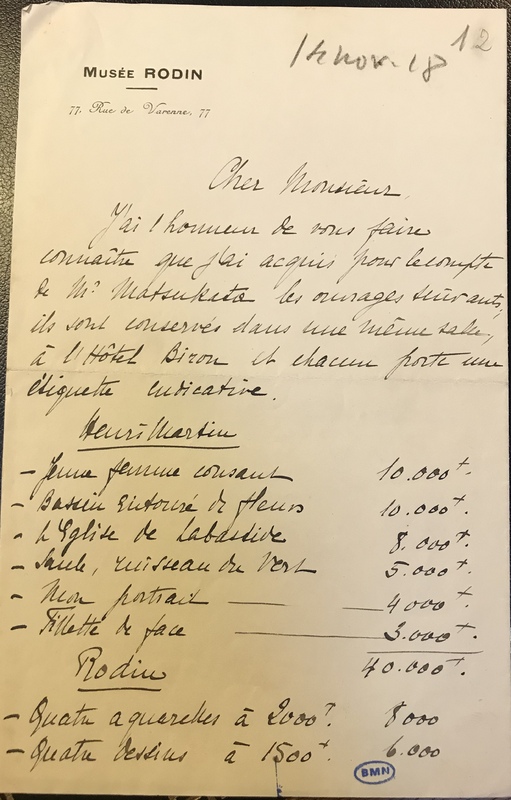 12
14 nov. 18
MUSÉE RODIN
77, Rue de Varenne, 77
Cher Monsieur,
J'ai l'honneur de vous faire
connaître que j'ai acquis pour le compte
de Mr Matsukata les ouvrages suivants,
ils sont conservés dans une même salle,
à l'Hôtel Biron et chacun porte une
étiquette indicative.
Henri Martin
- Jeune femme cousant 10.000f.
- Bassin entouré de fleurs 10.000f.
- L'Eglise de Labastide 8.000f.
- Saule, ruisseau du Vert 5.000f.
- Mon portrait 4000f.
- Fillette de face 3.000f.
40.000f.
Rodin
- Quatre aquarelles à 2000f. 8000
- Quatre dessins à 1500f. 6.000
BMN